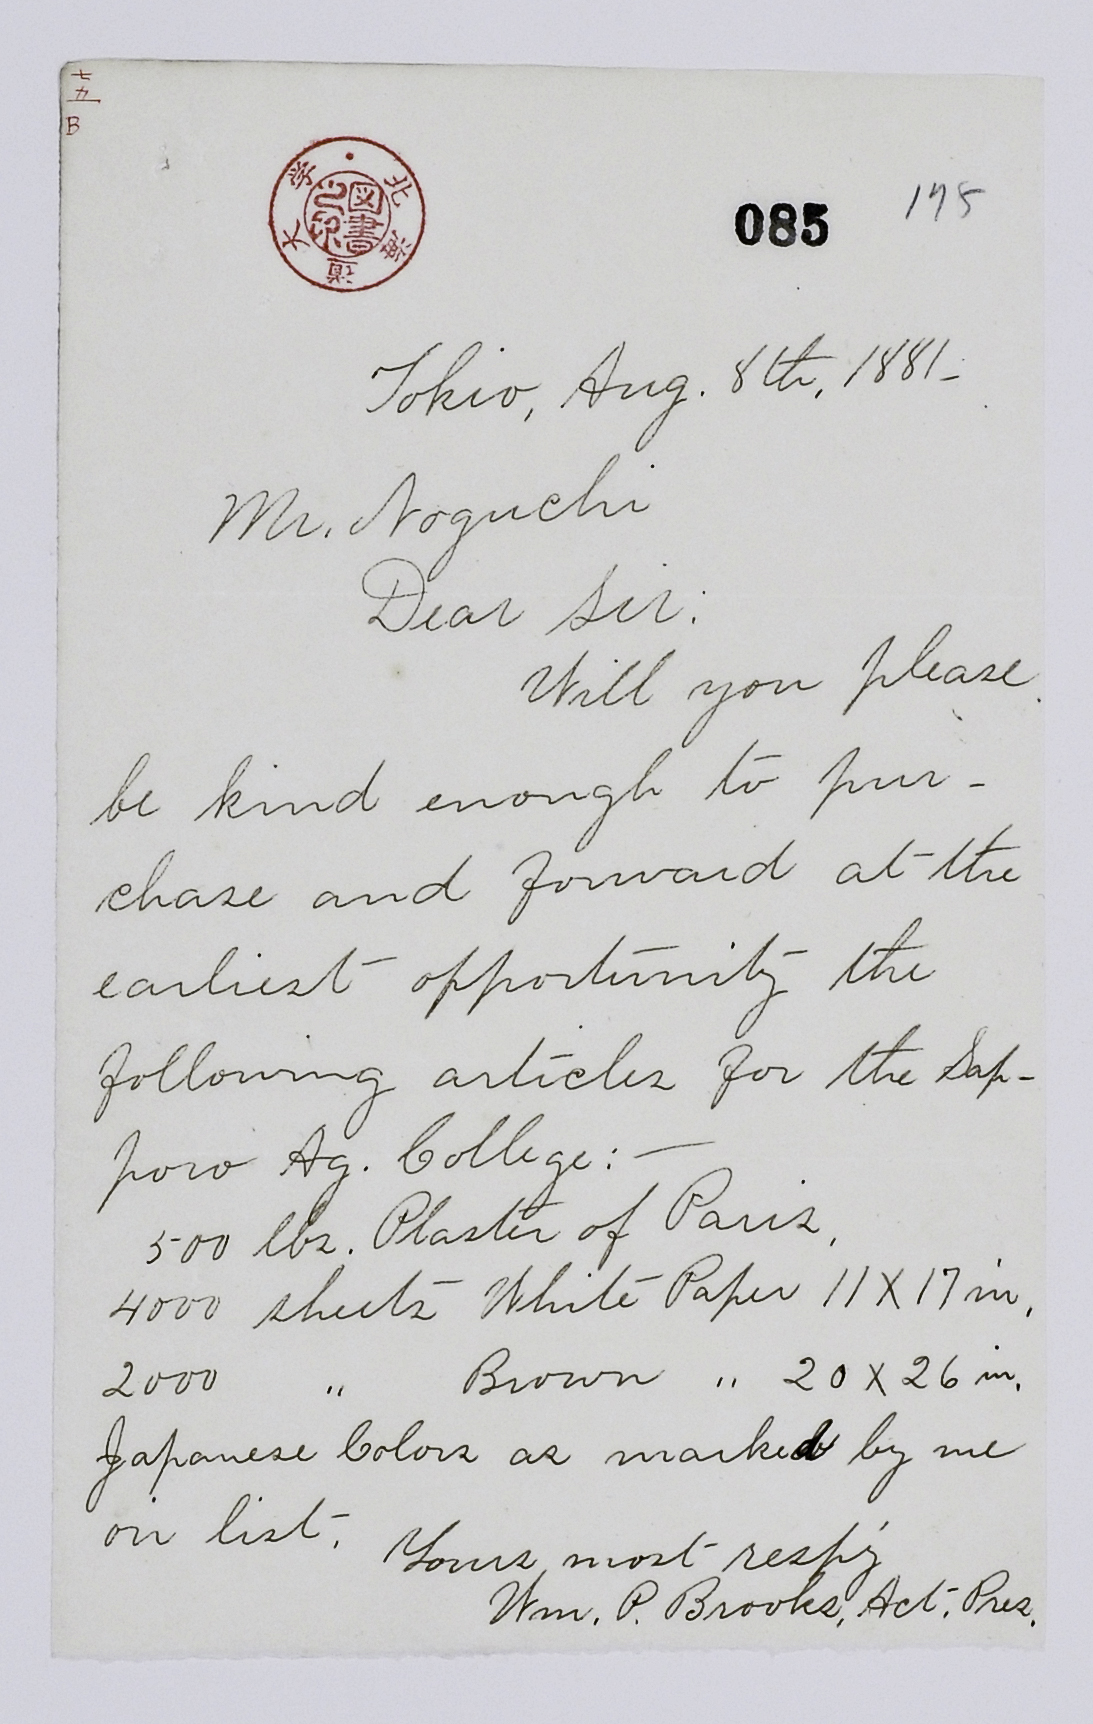 七
五
九
B
北海道大学
図書之印
085
175
Tokio, Aug. 8th, 1881-
Mr. Noguchi
Dear Sir:
Will you please
be kind enough to pur-
chase and forward at the
earliest opportunity the
following articles for the Sap-
poro Ag. College:—
500 lbs. Plaster of Paris,
4000 sheets White Paper 11 X 17 in.
2000 " Brown " 20 X 26 in.
Japanese Colors as marked by me
on list.
Yours most resp'y
Wm. P. Brooks, Act. Pres.